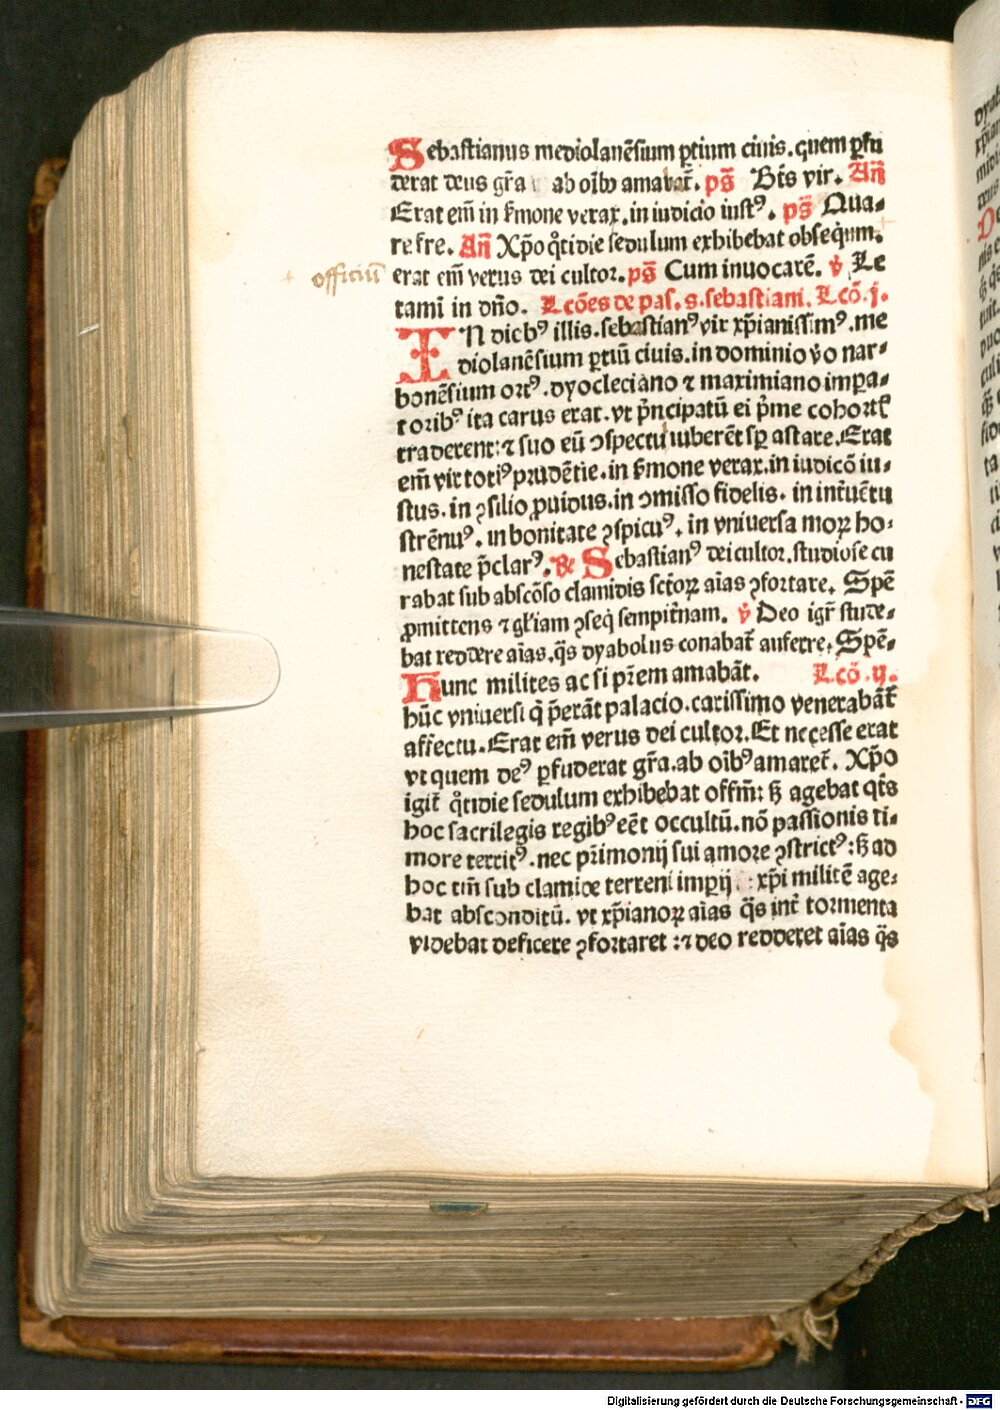 Sebastianus mediolanēsium ꝑtium ciuis. quem ꝑfu
derat deus gr̄a ab oībꝰ amabat̄. ps̄ Bt̄s vir. An̄
Erat em̄ in ẜmone verax. in iudicio iustꝰ. ps̄ Qua⸗
re fre. An̄ Xp̄o qͦtidie sedulum exhibebat obsequm̄.
officiū
erat em̄ verus dei cultor. ps̄ Cum inuocarē. v̄ Le
tami in dn̄o. Lcōes de pas. s. sebastiani. Lcō. j.
IN diebꝰ illis. sebastianꝰ vir xp̄ianissimꝰ. me
diolanēsium ꝑtiū ciuis. in dominio v̄o nar⸗
bonēsium ortꝰ. dyocleciano ⁊ maximiano impa⸗
toribꝰ ita carus erat. vt p̄ncipatū ei p̄me cohortꝭ
traderent: ⁊ suo eū ↄspectu iuberēt sꝑ astare. Erat
em̄ vir totiꝰ prudētie. in ẜmone verax. in iudicō iu⸗
stus. in ↄsilio ꝓuidus. in ↄmisso fidelis. in int̄uētu
strēnuꝰ. in bonitate ↄspicuꝰ. in vniuersa moꝝ ho⸗
nestate p̄clarꝰ. ℞ Sebastianꝰ dei cultor. studiose cu
rabat sub abscōso clamidis sctōꝝ aīas ↄfortare. Spē
ꝓmittens ⁊ gl̄iam ↄseq̄ sempit̄nam. v̄ Deo igr̄ stude⸗
bat reddere aīas. q̄s dyabolus conabat̄ auferre. Spē⸗
Hunc milites ac si pr̄em amabāt. Lcō. ij.
hūc vniuersi q̄ p̄erāt palacio. carissimo venerabāt̄
affectu. Erat em̄ verus dei cultor. Et necesse erat
vt quem deꝰ ꝑfuderat gr̄a. ab oībꝰ amaret̄. Xp̄o
igit̄ qͦtidie sedulum exhibebat offm̄: ẜꝫ agebat qt̄s
hoc sacrilegis regibꝰ eēt occultū. nō passionis ti⸗
more territꝰ. nec pr̄imonij sui amore ↄstrictꝰ: ẜꝫ ad
hoc tm̄ sub clamide terreni impij xp̄i militē age⸗
bat absconditū. vt xp̄ianoꝝ aīas q̄s int̄ tormenta
videbat deficere ↄfortaret: ⁊ deo redderet aīas q̄s
Digitalisierung gefördert durch die Deutsche Forschungsgemeinschaft - DFG